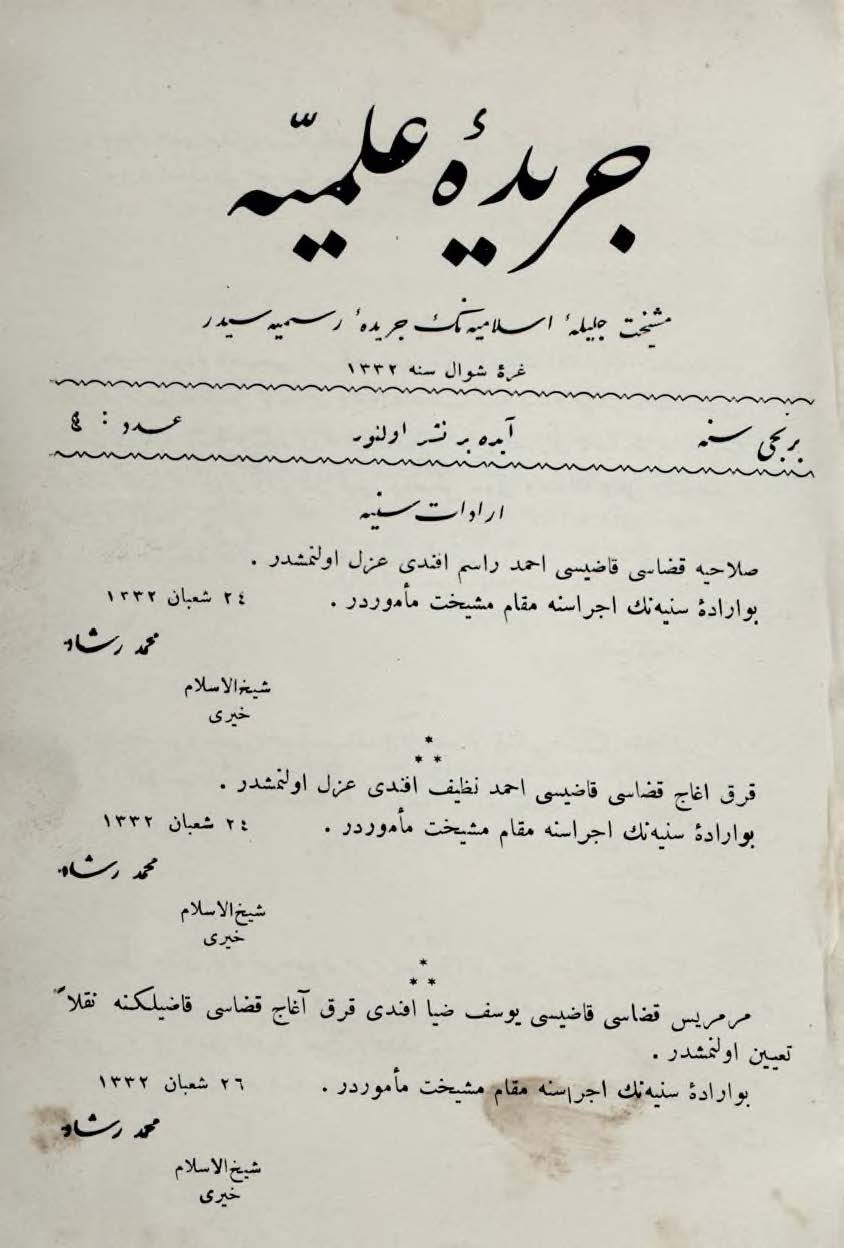 جريدهٔ علميّه
مشيخت جليلهٔ اسلاميه‌نك جريدهٔ رسميه‌سيدر
غرهٔ شوال سنه ١٣٣٢
برنجى سنه آيده بر نشر اولنور عدد : ٤
ارادات سنيه
صلاحيه قضاسى قاضيسى احمد راسم افندى عزل اولنمشدر .
بو ارادهٔ سنيه‌نك اجراسنه مقام مشيخت مأموردر . ٢٤ شعبان ١٣٣٢
محمد رشاد
شيخ‌الاسلام
خيرى
*
* *
قرق اغاج قضاسى قاضيسى احمد نظيف افندى عزل اولنمشدر .
بو ارادهٔ سنيه‌نك اجراسنه مقام مشيخت مأموردر . ٢٤ شعبان ١٣٣٢
محمد رشاد
شيخ‌الاسلام
خيرى
*
* *
مرمريس قضاسى قاضيسى يوسف ضيا افندى قرق آغاج قضاسى قاضيلكنه نقلاً
تعيين اولنمشدر .
بو ارادهٔ سنيه‌نك اجراسنه مقام مشيخت مأموردر . ٢٦ شعبان ١٣٣٢
محمد رشاد
شيخ‌الاسلام
خيرى